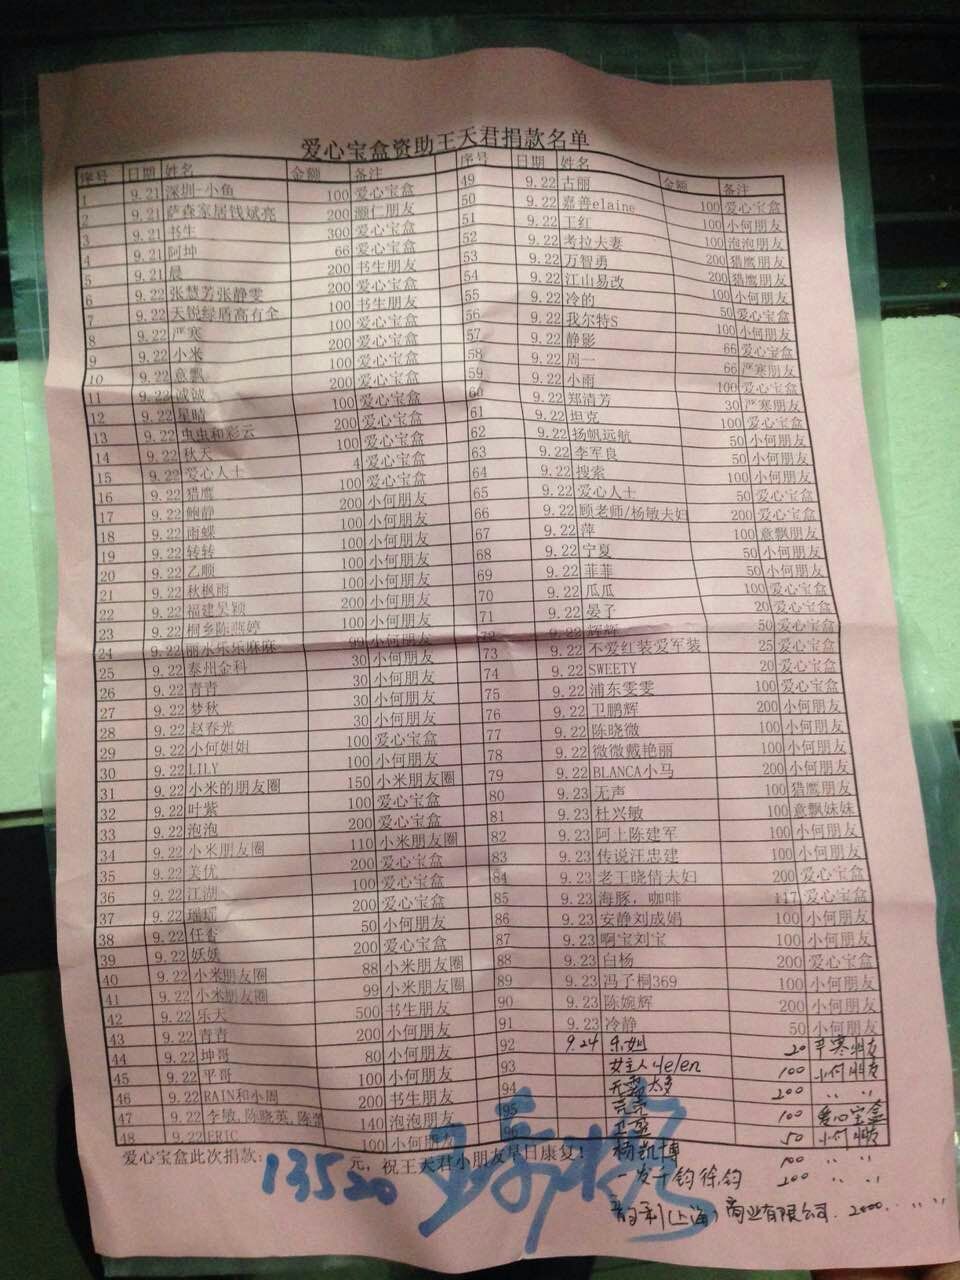 爱心宝盒资助王天君捐款名单
序号 日期 姓名 金额 备注
1 9.21 深圳-小鱼 100 爱心宝盒
2 9.21 萨森家居钱斌亮 200 灏仁朋友
3 9.21 书生 300 爱心宝盒
4 9.21 阿坤 66 爱心宝盒
5 9.21 晨 200 书生朋友
6 9.22 张慧芳张静雯 200 爱心宝盒
7 9.22 天锐绿盾高有全 100 书生朋友
8 9.22 严寒 200 爱心宝盒
9 9.22 小米 200 爱心宝盒
10 9.22 意飘 100 爱心宝盒
11 9.22 诚诚 200 爱心宝盒
12 9.22 星晴 100 爱心宝盒
13 9.22 虫虫和彩云 200 爱心宝盒
14 9.22 秋天 100 爱心宝盒
15 9.22 爱心人士 4 爱心宝盒
16 9.22 猎鹰 100 爱心宝盒
17 9.22 鲍静 200 小何朋友
18 9.22 雨蝶 100 小何朋友
19 9.22 转转 100 小何朋友
20 9.22 乙顺 100 小何朋友
21 9.22 秋枫雨 100 小何朋友
22 9.22 福建吴颖 200 小何朋友
23 9.22 桐乡陈燕婷 100 小何朋友
24 9.22 丽水乐乐麻麻 99 小何朋友
25 9.22 泰州金科 30 小何朋友
26 9.22 青青 30 小何朋友
27 9.22 梦秋 30 小何朋友
28 9.22 赵春光 30 小何朋友
29 9.22 小何姐姐 100 爱心宝盒
30 9.22 LILY 100 小何朋友
31 9.22 小米的朋友圈 150 小米朋友圈
32 9.22 叶紫 200 爱心宝盒
33 9.22 泡泡 200 爱心宝盒
34 9.22 小米朋友圈 110 小米朋友圈
35 9.22 美优 200 爱心宝盒
36 9.22 江湖 100 爱心宝盒
37 9.22 瑞瑶 200 爱心宝盒
38 9.22 任香 50 小何朋友
39 9.22 妖妖 200 爱心宝盒
40 9.22 小米朋友圈 88 小米朋友圈
41 9.22 小米朋友圈 99 小米朋友圈
42 9.22 乐天 500 书生朋友
43 9.22 青青 200 小何朋友
44 9.22 坤哥 80 小何朋友
45 9.22 平哥 100 小何朋友
46 9.22 RAIN和小周 200 书生朋友
47 9.22 李敏,陈晓英,陈蕾 140 泡泡朋友
48 9.22 ERIC 100 小何朋友
序号 日期 姓名 金额 备注
49 9.22 古丽 100 爱心宝盒
50 9.22 嘉善elaine 100 小何朋友
51 9.22 王红 100 泡泡朋友
52 9.22 考拉夫妻 200 猎鹰朋友
53 9.22 万智勇 200 猎鹰朋友
54 9.22 江山易改 100 小何朋友
55 9.22 冷的 50 爱心宝盒
56 9.22 我尔特S 100 小何朋友
57 9.22 静影 66 爱心宝盒
58 9.22 周一 66 严寒朋友
59 9.22 小雨 100 爱心宝盒
60 9.22 郑清芳 30 严寒朋友
61 9.22 坦克 100 爱心宝盒
62 9.22 扬帆远航 50 小何朋友
63 9.22 李军良 50 小何朋友
64 9.22 搜索 100 小何朋友
65 9.22 爱心人士 50 爱心宝盒
66 9.22 顾老师/杨敏夫妇 200 爱心宝盒
67 9.22 萍 100 意飘朋友
68 9.22 宁夏 50 小何朋友
69 9.22 菲菲 50 小何朋友
70 9.22 瓜瓜 100 爱心宝盒
71 9.22 晏子 20 爱心宝盒
72 9.22 辉辉 50 爱心宝盒
73 9.22 不爱红装爱军装 25 爱心宝盒
74 9.22 SWEETY 20 爱心宝盒
75 9.22 浦东雯雯 100 爱心宝盒
76 9.22 卫鹏辉 200 小何朋友
77 9.22 陈晓微 100 小何朋友
78 9.22 微微戴艳丽 100 小何朋友
79 9.22 BLANCA小马 200 小何朋友
80 9.23 无声 100 猎鹰朋友
81 9.23 杜兴敏 100 意飘妹妹
82 9.23 阿土陈建军 100 小何朋友
83 9.23 传说汪忠建 100 小何朋友
84 9.23 老王晓倩夫妇 200 爱心宝盒
85 9.23 海豚,咖啡 117 爱心宝盒
86 9.23 安静刘成娟 100 小何朋友
87 9.23 啊宝刘宝 100 小何朋友
88 9.23 白杨 200 爱心宝盒
89 9.23 冯子桐369 100 小何朋友
90 9.23 陈婉辉 200 小何朋友
91 9.23 冷静 50 小何朋友
92 9.24 乐姐 20 辛寒朋友
93 女主人Helen 100 小何朋友
94 200 〃 〃
95 亮亮 100 爱心宝盒
96 50 小何朋友
杨凯博 100 〃 〃
一发千钧徐钧 200 〃 〃
(上海)商业有限公司 2000 〃 〃
爱心宝盒此次捐款: 13520 元,祝王天君小朋友早日康复!